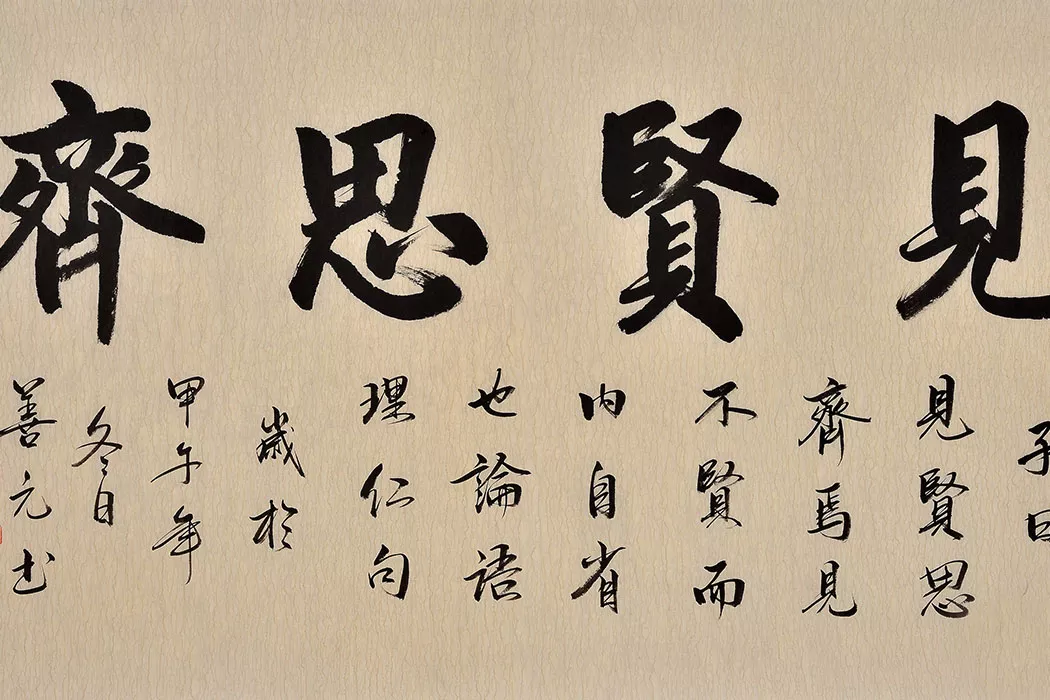 見賢思齊
子曰
見賢思
齊焉見
不賢而
内自省
也論語
理仁句
歲於
甲午年
冬日
善元书